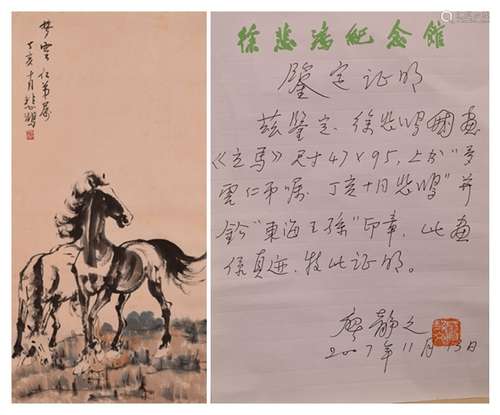 梦云仁弟属
丁亥十月悲鸿
徐悲鸿纪念馆
鉴定证明
兹鉴定、徐悲鸿国画
《立马》尺寸47×95,上书"梦
云仁弟嘱、丁亥十月悲鸿"并
钤"東海王孫"印章,此画
系真迹,特此证明。
廖静文
2007年11月13日